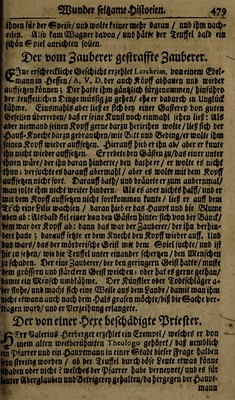 Wunder seltzame Historien. 479
ihnen für der Speise/ und wolte keiner mehr daran / und ihm nach-
eilen. Also kam Wagner davon/ und hätte der Teuffel bald ein
schön Spiel anrichten sollen.
Der vom Zauberer gestraffte Zauberer.
Eine erschreckliche Geschicht erzehlet Lercheim, von einem Edel-
mann in Hessen/ A. V. D. der auch Köpff abhauen und wieder
auffsetzen können; Der hatte ihm gäntzlich fürgenommen/ hinfüro
der teuflischen Dinge müssig zu gehen/ ehe er dadurch in Unglück
käme. Einsmahls aber ließ er sich bey einer Gasterey von guten
Gesellen überreden/ daß er seine Kunst noch einmahl sehen ließ: Als
aber niemand seinen Kopff gerne darzu herleihen wolte / ließ sich der
Hauß-Knecht darzu gebrauchen/mit Bitt und Beding/er wolte ihm
seinen Kopff wieder auffsetzen. Hierauff hieb er ihn ab/ aber er kunte
ihn nicht wieder auffsetzen. Er redete den Gästen zu/ daß einer unter
ihnen wäre/ der ihn daran hindere/ den bathe er / er wolte es nicht
thun; versuchtes es darauff abermahl / aber es wolte sich der Kopff
auffsetzen nicht fort. Darauff bath und dräuete er zum andernmal/
man solte ihm nicht wieder hindern. Als es aber nichts halff/ und er
mit dem Kopff auffsetzen nicht fortkommen kunte / ließ er auff dem
Tisch eine Lilie wachsen / daran hieb er das Haupt und die Blume
oben ab: Alsbald fiel einer von den Gästen hinter sich von der Banck/
dem war der Kopff ab: dann das war der Zauberer/ der ihn verhin-
dert hatte; darauff setzte er dem Knecht den Kopff wieder auff. Und
das war/ das der mörderische Geist mit dem Spiel suchte/ und ist
hie zu sehen/ wie die Teuffel unter einander schertzen/ den Menschen
zu schaden. Der eine Zauberer/ der den geringen Geist hatte/ muste
dem grössern und stärckern Geist weichen; oder hat es gerne gethan/
damit ein Mensch umbkäme. Der Künstler oder Kopffschläger a-
ber flohe/ und machte sich eine Weile aus dem Lande/ damit man ihm
nicht etwann auch nach dem Hals grasen möchte/biß die Sache ver-
tragen war/ und er Verzeihung erlangete.
Der von einer Hexe beschädigte Priester.
Herr Valerius Herberger erzehlet ein Exempel/ welches er von
einem alten weitberühmten Theologo gehöret/ daß nemblich
ein Pfarrer und ein Hauptmann in einer Stadt dieser Frage halben
seyn streitig worden/ ob der Teuffel durch böse Leute etwas könne
schaden oder nicht? welches der Pfarrer verneinet/ und es für
lauter Aberglauben und Betriegerey gehalten/ da hergegen der Haupt-
mann